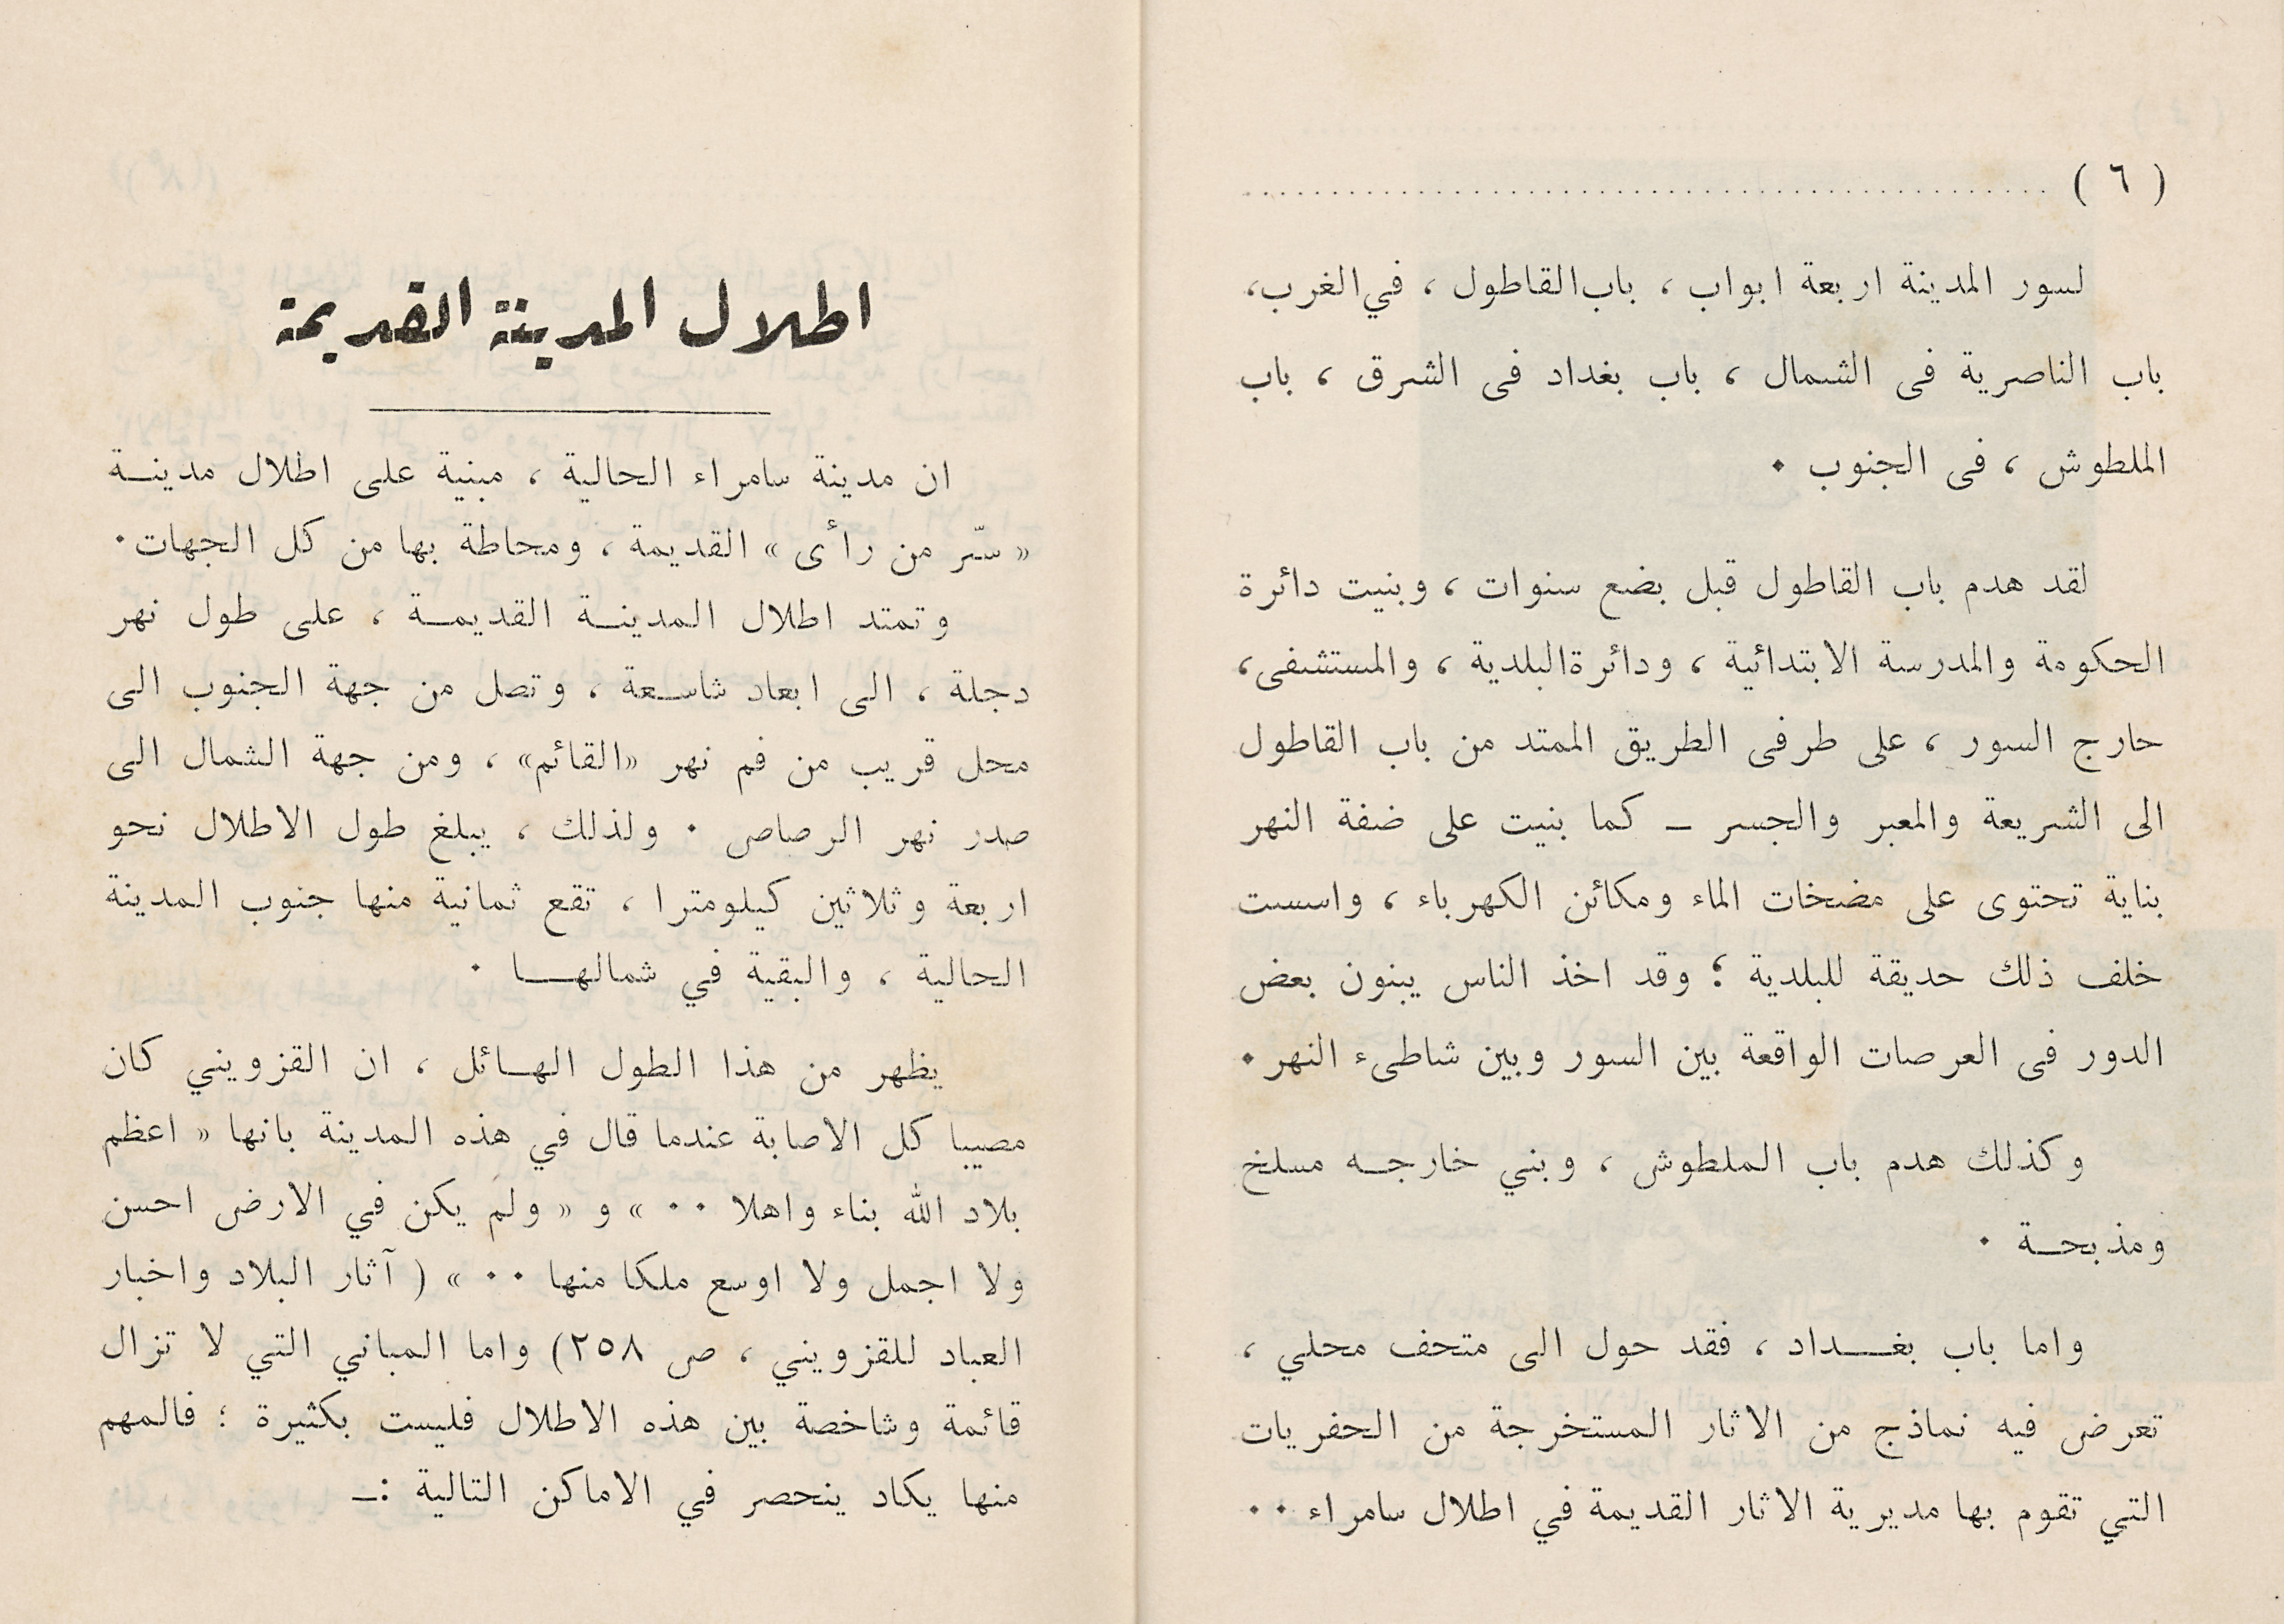 ( ٦ ) ................................................
لسور المدينة اربعة ابواب ، باب القاطول ، في الغرب،
باب الناصرية فى الشمال ، باب بغداد فى الشرق ، باب
الملطوش ، فى الجنوب ٠
لقد هدم باب القاطول قبل بضع سنوات ، وبنيت دائرة
الحكومة والمدرسة الابتدائية ، ودائرة البلدية ، والمستشفى،
حارج السور ، على طرفى الطريق الممتد من باب القاطول
الى الشريعة والمعبر والجسر ــ كما بنيت على ضفة النهر
بناية تحتوى على مضخات الماء ومكائن الكهرباء ، واسست
خلف ذلك حديقة للبلدية ؛ وقد اخذ الناس يبنون بعض
الدور فى العرصات الواقعة بين السور وبين شاطىء النهر ٠
وكذلك هدم باب الملطوش ، وبني خارجـه مسلخ
ومذبحـة ٠
واما باب بغـــداد ، فقد حول الى متحف محلي ،
تعرض فيه نماذج من الاثار المستخرجة من الحفريات
التي تقوم بها مديرية الاثار القديمة في اطلال سامراء ٠٠
اطلال المدينة القديمة
ان مدينة سامراء الحالية ، مبنية على اطلال مدينـة
« سّر من رأى » القديمة ، ومحاطة بها من كل الجهات ٠
وتمتد اطلال المدينـة القديمـة ، على طول نهر
دجلة ، الى ابعاد شاسعة ، وتصل من جهة الجنوب الى
محل قريب من فم نهر «القائم» ، ومن جهة الشمال الى
صدر نهر الرصاص ٠ ولذلك ، يبلغ طول الاطلال نحو
اربعة وثلاثين كيلومترا ، تقع ثمانية منها جنوب المدينة
الحالية ، والبقية في شمالهــا ٠
يظهر من هذا الطول الهـائل ، ان القزويني كان
مصيبا كل الاصابة عندما قال في هذه المدينة بانها « اعظم
بلاد الله بناء واهلا ٠٠ » و « ولم يكن في الارض احسن
ولا اجمل ولا اوسع ملكا منها ٠٠ » ( آثار البلاد واخبار
العباد للقزويني ، ص ٢٥٨) واما المباني التي لا تزال
قائمة وشاخصة بين هذه الاطلال فليست بكثيرة ؛ فالمهم
منها يكاد ينحصر في الاماكن التالية :ــ